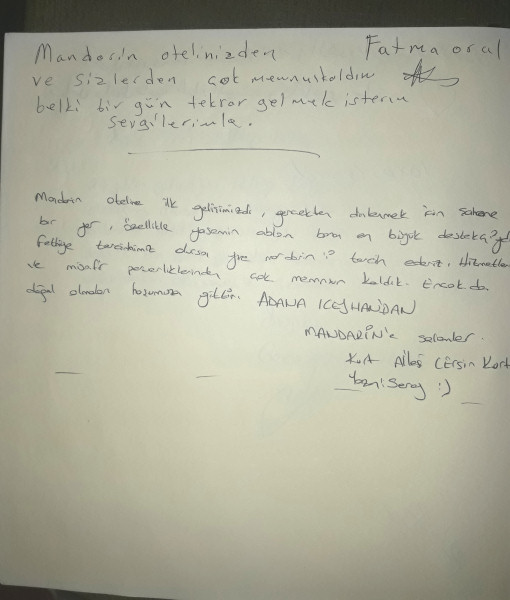 Mandarin otelinizden Fatma oral
ve sizlerden çok memnu kaldım
belki bir gün tekrar gelmek isterim
sevgilerimle.
Mandarin oteline ilk gelişimizdi, gerçekten dinlenmek için şahane
bir yer, özellikle yasemin ablam bana en büyük destekçiydi
fethiye tercihimiz olursa yine mandarin'i tercih ederiz. Hizmetlerinden
ve misafir perverliklerinden çok memnun kaldık. En çok da
doğal olmaları hoşumuza gitti. ADANA CEYHAN'DAN
MANDARİN'e selamlar.
Kurt Ailesi (Ersin Kurt
Yazan: Seray :)